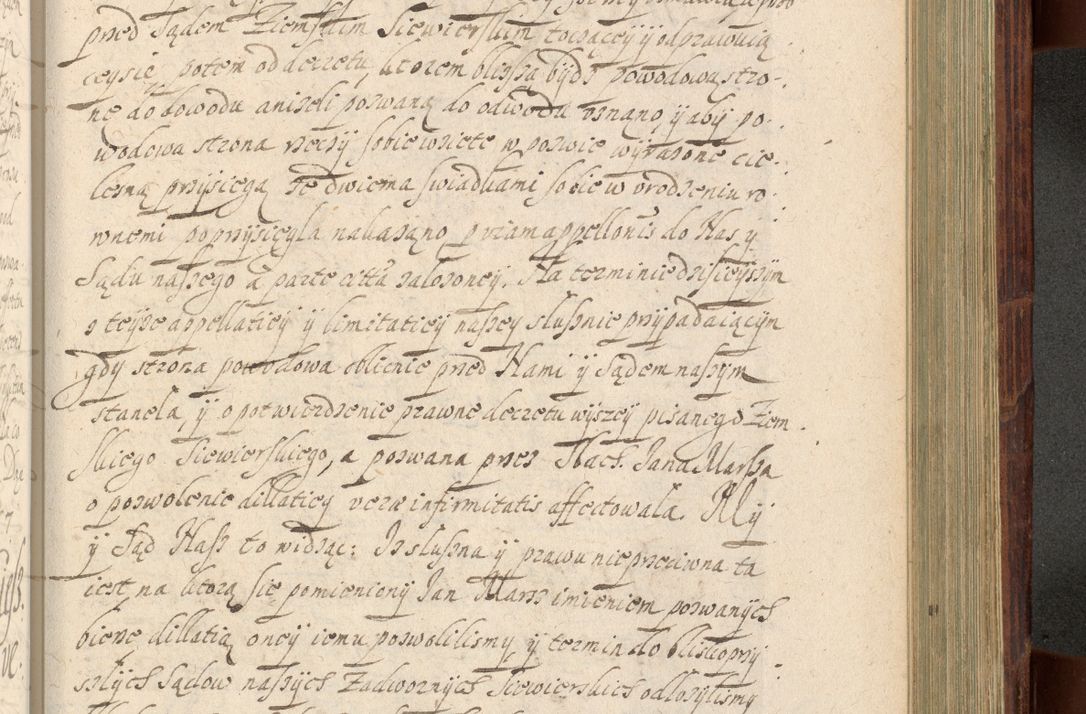 przed Sądem Ziemskim Siewierskim toczącey y odprawuią
cey się potem od decretu, ktorem bliszszą bydz powodową stro-
nę do dowodu aniżeli pozwaną do odwodu uznano y aby po-
wodowa strona rzeczy sobie wzięte w pozwie wyrażone cie-
lesną przysięgą ze dwiema swiadkami sobie w urodzeniu ro-
wnemi poprzysięgła nakazano, per iam appellonis do Nas y
Sądu naszego a parte citta założoney. Na terminie dzisieyszym
z teyże appellatiey y limitatiey naszey słusznie przypadaiącym
gdy strona powodowa oblicnie przed Nami y Sądem naszym
stanęla, y o potwierdzenie prawne decretu wyszey pisanego Ziem
skiego Siewierskiego, a pozwana przez Szlach. Jana Marsza
o pozwolenie dillatiey veræ infirmitatis affectowala. My
y Sąd Nasz to widząc: Iż słuszna y prawu nie przeciwna ta
iest na ktorą się pomieniony Jan Marsz imieniem pozwanych
bierze dillatią oney iemu pozwolilismy, y termin do blisko przy
szłych Sądow naszych Zadwornych Siewierskich odłożylismy